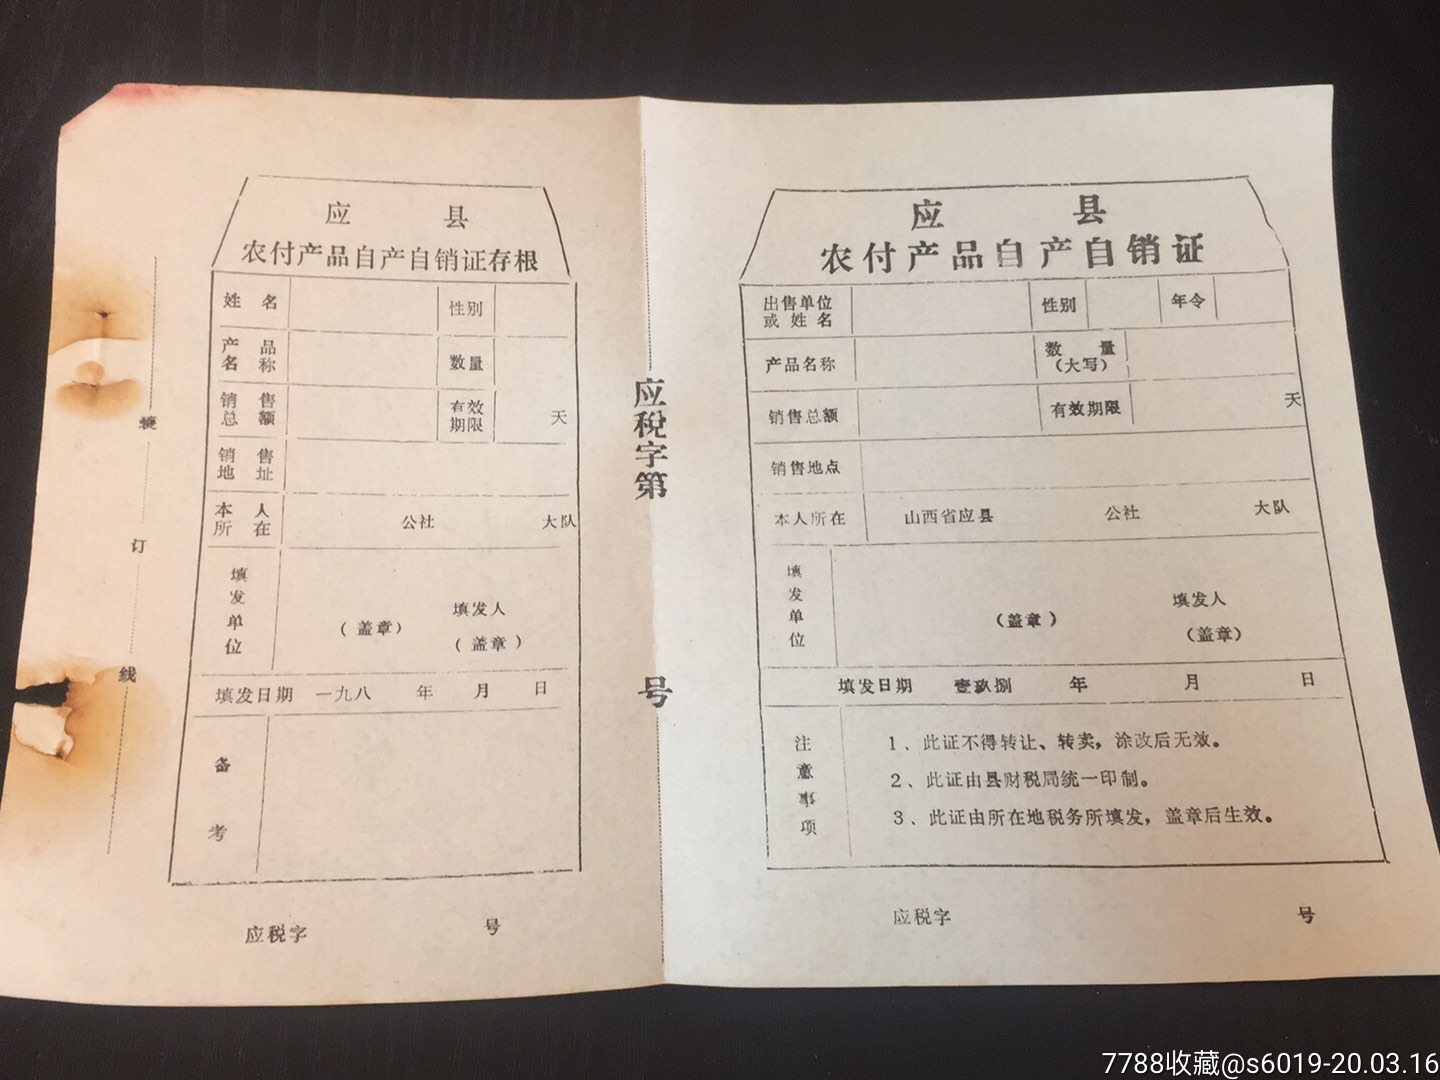 应 县
农付产品自产自销证存根
姓名 性别
产品名称 数量
销售总额 有效期限 天
销售地址
本人所在 公社 大队
填发单位 (盖章) 填发人 (盖章)
填发日期 一九八 年 月 日
备考
应税字 号
装订线
应税字第 号
应 县
农付产品自产自销证
出售单位或姓名 性别 年令
产品名称 数量(大写)
销售总额 有效期限 天
销售地点
本人所在 山西省应县 公社 大队
填发单位 (盖章) 填发人 (盖章)
填发日期 壹玖捌 年 月 日
注意事项
1、此证不得转让、转卖，涂改后无效。
2、此证由县财税局统一印制。
3、此证由所在地税务所填发，盖章后生效。
应税字 号
7788收藏@s6019-20.03.16